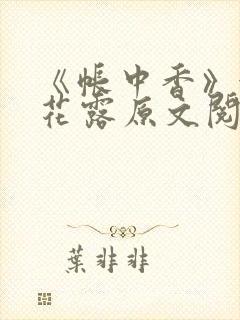 《帐中香》
花露原文阅
葉非非